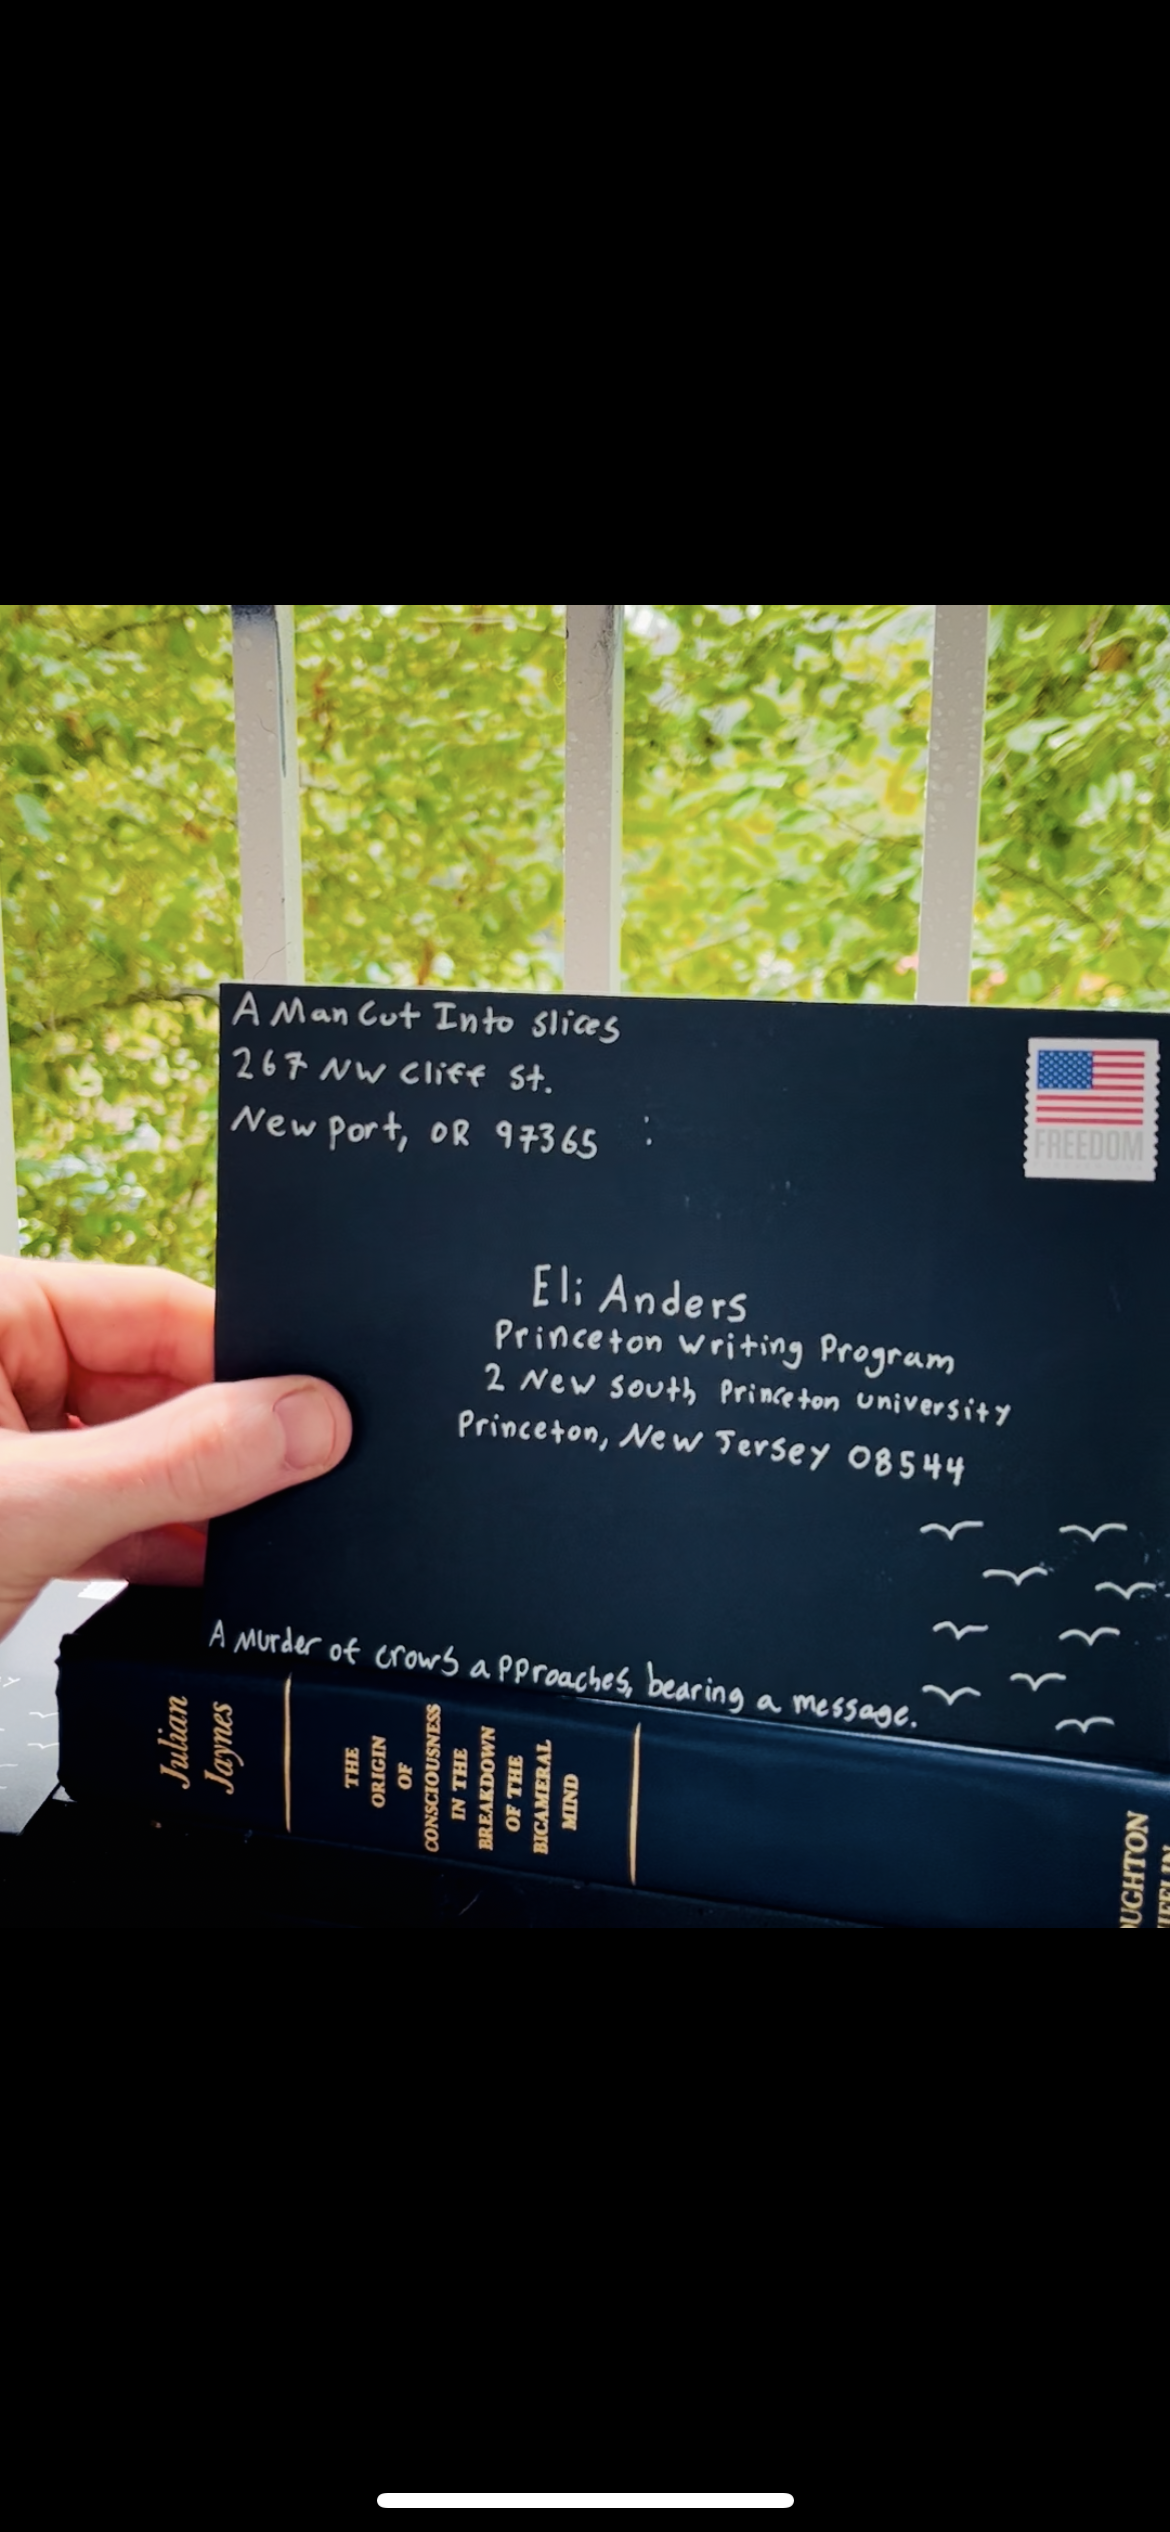 A Man Cut Into slices
267 NW Cliff St.
Newport, OR 97365
:
FREEDOM
Eli Anders
Princeton Writing Program
2 New South Princeton University
Princeton, New Jersey 08544
A Murder of crows approaches, bearing a message.
Julian
Jaynes
THE
ORIGIN
OF
CONSCIOUSNESS
IN THE
BREAKDOWN
OF THE
BICAMERAL
MIND